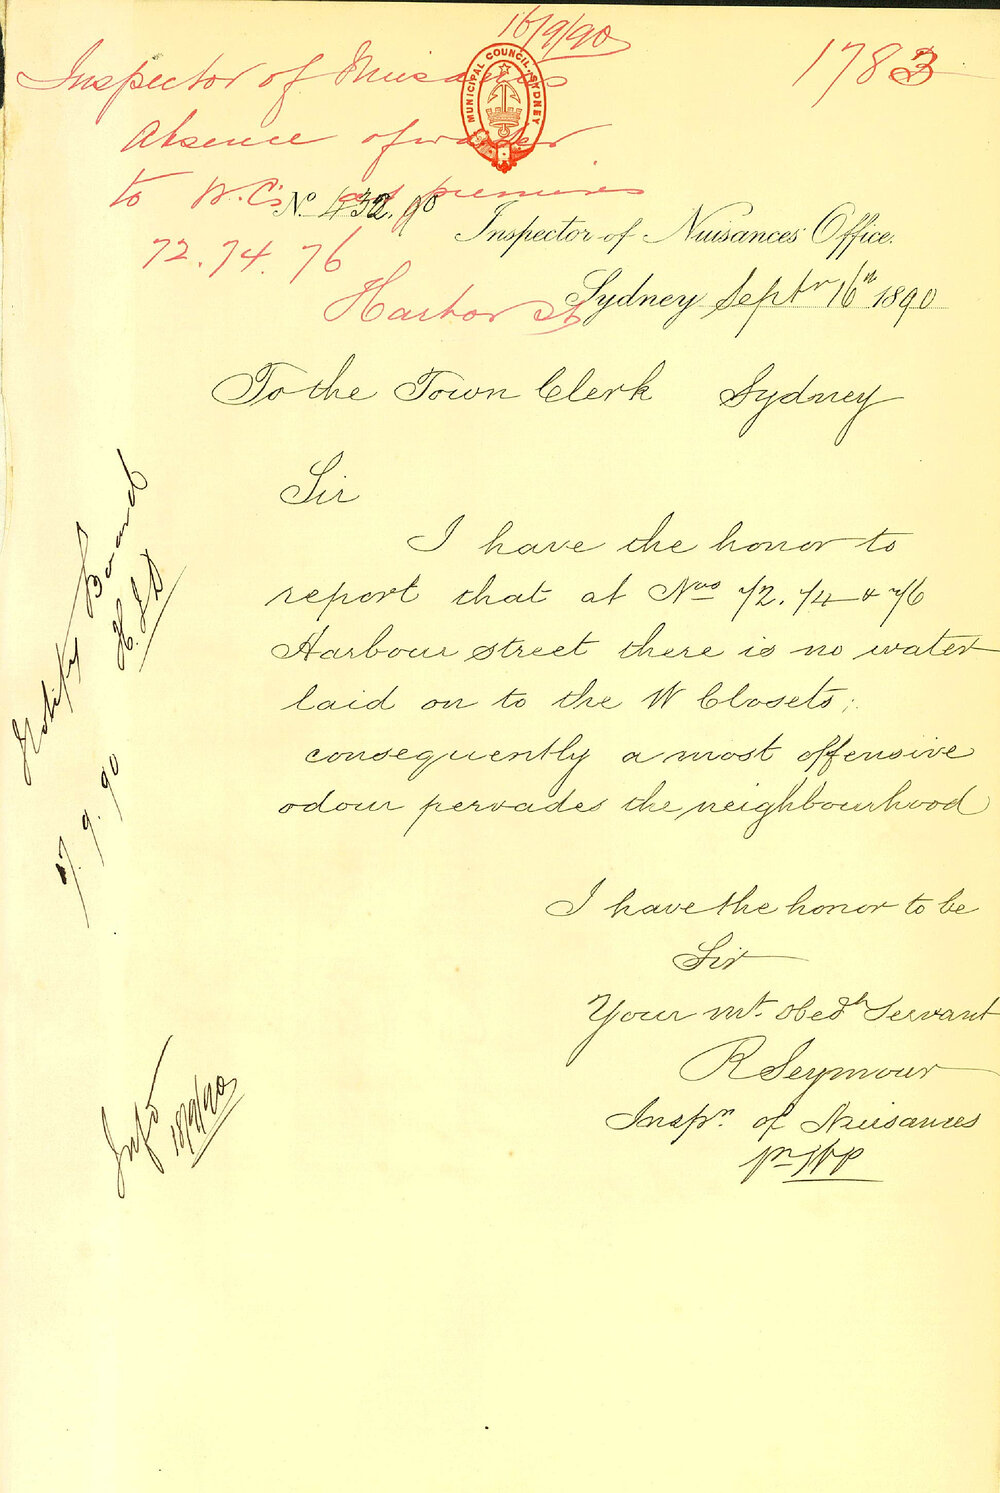 16/9/90
1783
Inspector of Nuisances
MUNICIPAL COUNCIL, SYDNEY
Absence of water
to W.C's at premises
No. 432.90
72. 74. 76
Inspector of Nuisances' Office.
Harbor St
Sydney Septr 16th 1890
To the Town Clerk Sydney
Sir
I have the honor to
report that at Nos 72. 74 & 76
Harbour street there is no water
laid on to the W Closets;
consequently a most offensive
odour pervades the neighbourhood
I have the honor to be
Sir
Your mt. obedt Servant
R Seymour
Inspr. of Nuisances
pr
Notify Board
17.9.90
Infd
18/9/90